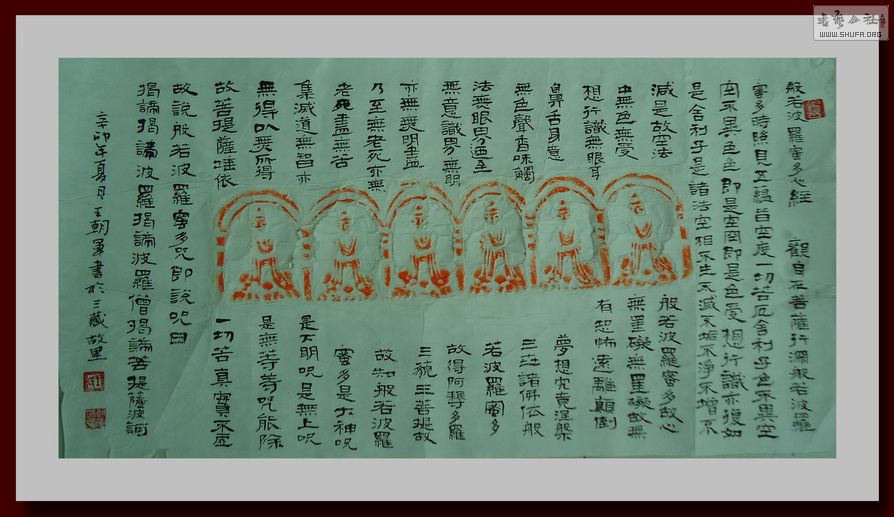 般若波羅蜜多心經 觀自在菩薩行深般若波羅
蜜多時照見五蘊皆空度一切苦厄舍利子色不異空
空不異色色即是空空即是色受想行識亦復如
是舍利子是諸法空相不生不滅不垢不淨不增不
減是故空法
中無色無受
想行識無眼耳
鼻舌身意
無色聲香味觸
法無眼界迺至
無意識界無明
亦無無明盡
乃至無老死亦無
老死盡無苦
集滅道無智亦
無得以無所得
故菩提薩埵依
般若波羅蜜多故心
無罣礙無罣礙故無
有恐怖遠離顛倒
夢想究竟涅槃
三世諸佛依般
若波羅蜜多
故得阿耨多羅
三藐三菩提故
故知般若波羅
蜜多是大神咒
是大明咒是無上咒
是無等等咒能除
一切苦真實不虛
故說般若波羅蜜多咒即說咒曰
揭諦揭諦波羅揭諦波羅僧揭諦菩提薩婆訶
辛卯年夏月王朝書於三藏故里
WWW.SHUFA.ORG